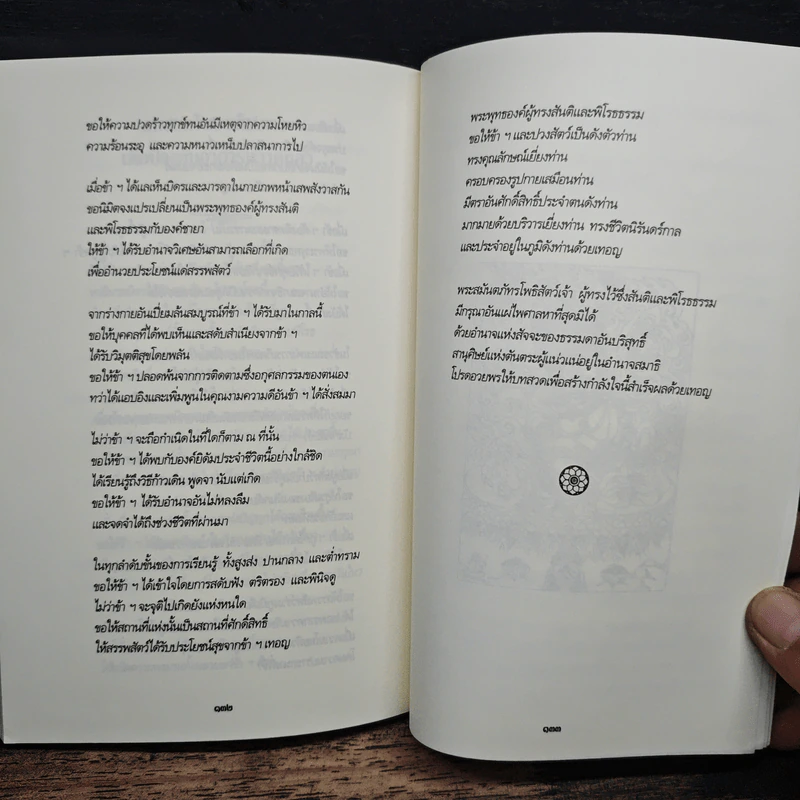 ขอให้ความปวดร้าวทุกข์ทนอันมีเหตุจากความโหยหิว
ความร้อนระอุ และความหนาวเหน็บปลาสนาการไป
เมื่อข้า ฯ ได้แลเห็นบิดรและมารดาในภายภพหน้าเสพสังวาสกัน
ขอนิมิตจงแปรเปลี่ยนเป็นพระพุทธองค์ผู้ทรงสันติ
และพิโรธธรรมกับองค์ชายา
ให้ข้า ฯ ได้รับอำนาจวิเศษอันสามารถเลือกที่เกิด
เพื่ออำนวยประโยชน์แด่สรรพสัตว์
จากร่างกายอันเปี่ยมล้นสมบูรณ์ที่ข้า ฯ ได้รับมาในกาลนี้
ขอให้บุคคลที่ได้พบเห็นและสดับสำเนียงจากข้า ฯ
ได้รับวิมุตติสุขโดยพลัน
ขอให้ข้า ฯ ปลอดพ้นจากการติดตามซึ่งอกุศลกรรมของตนเอง
ทว่าได้แอบอิงและเพิ่มพูนในคุณงามความดีอันข้า ฯ ได้สั่งสมมา
ไม่ว่าข้า ฯ จะถือกำเนิดในที่ใดก็ตาม ณ ที่นั้น
ขอให้ข้า ฯ ได้พบกับองค์ยิดัมประจำชีวิตนี้อย่างใกล้ชิด
ได้เรียนรู้ถึงวิธีก้าวเดิน พูดจา นับแต่เกิด
ขอให้ข้า ฯ ได้รับอำนาจอันไม่หลงลืม
และจดจำได้ถึงช่วงชีวิตที่ผ่านมา
ในทุกลำดับขั้นของการเรียนรู้ ทั้งสูงส่ง ปานกลาง และต่ำทราม
ขอให้ข้า ฯ ได้เข้าใจโดยการสดับฟัง ตริตรอง และพินิจดู
ไม่ว่าข้า ฯ จะจุติไปเกิดยังแห่งหนใด
ขอให้สถานที่แห่งนั้นเป็นสถานที่ศักดิ์สิทธิ์
ให้สรรพสัตว์ได้รับประโยชน์สุขจากข้า ฯ เทอญ
๑๓๒
พระพุทธองค์ผู้ทรงสันติและพิโรธธรรม
ขอให้ข้า ฯ และปวงสัตว์เป็นดังตัวท่าน
ทรงคุณลักษณ์เยี่ยงท่าน
ครอบครองรูปกายเสมือนท่าน
มีตราอันศักดิ์สิทธิ์ประจำตนดังท่าน
มากมายด้วยบริวารเยี่ยงท่าน ทรงชีวิตนิรันดร์กาล
และประจำอยู่ในภูมิดังท่านด้วยเทอญ
พระสมันตภัทรโพธิสัตว์เจ้า ผู้ทรงไว้ซึ่งสันติและพิโรธธรรม
มีกรุณาอันแผ่ไพศาลหาที่สุดมิได้
ด้วยอำนาจแห่งสัจจะของธรรมดาอันบริสุทธิ์
สานุศิษย์แห่งตันตระผู้แน่วแน่อยู่ในอำนาจสมาธิ
โปรดอวยพรให้บทสวดเพื่อสร้างกำลังใจนี้สำเร็จผลด้วยเทอญ
๑๓๓